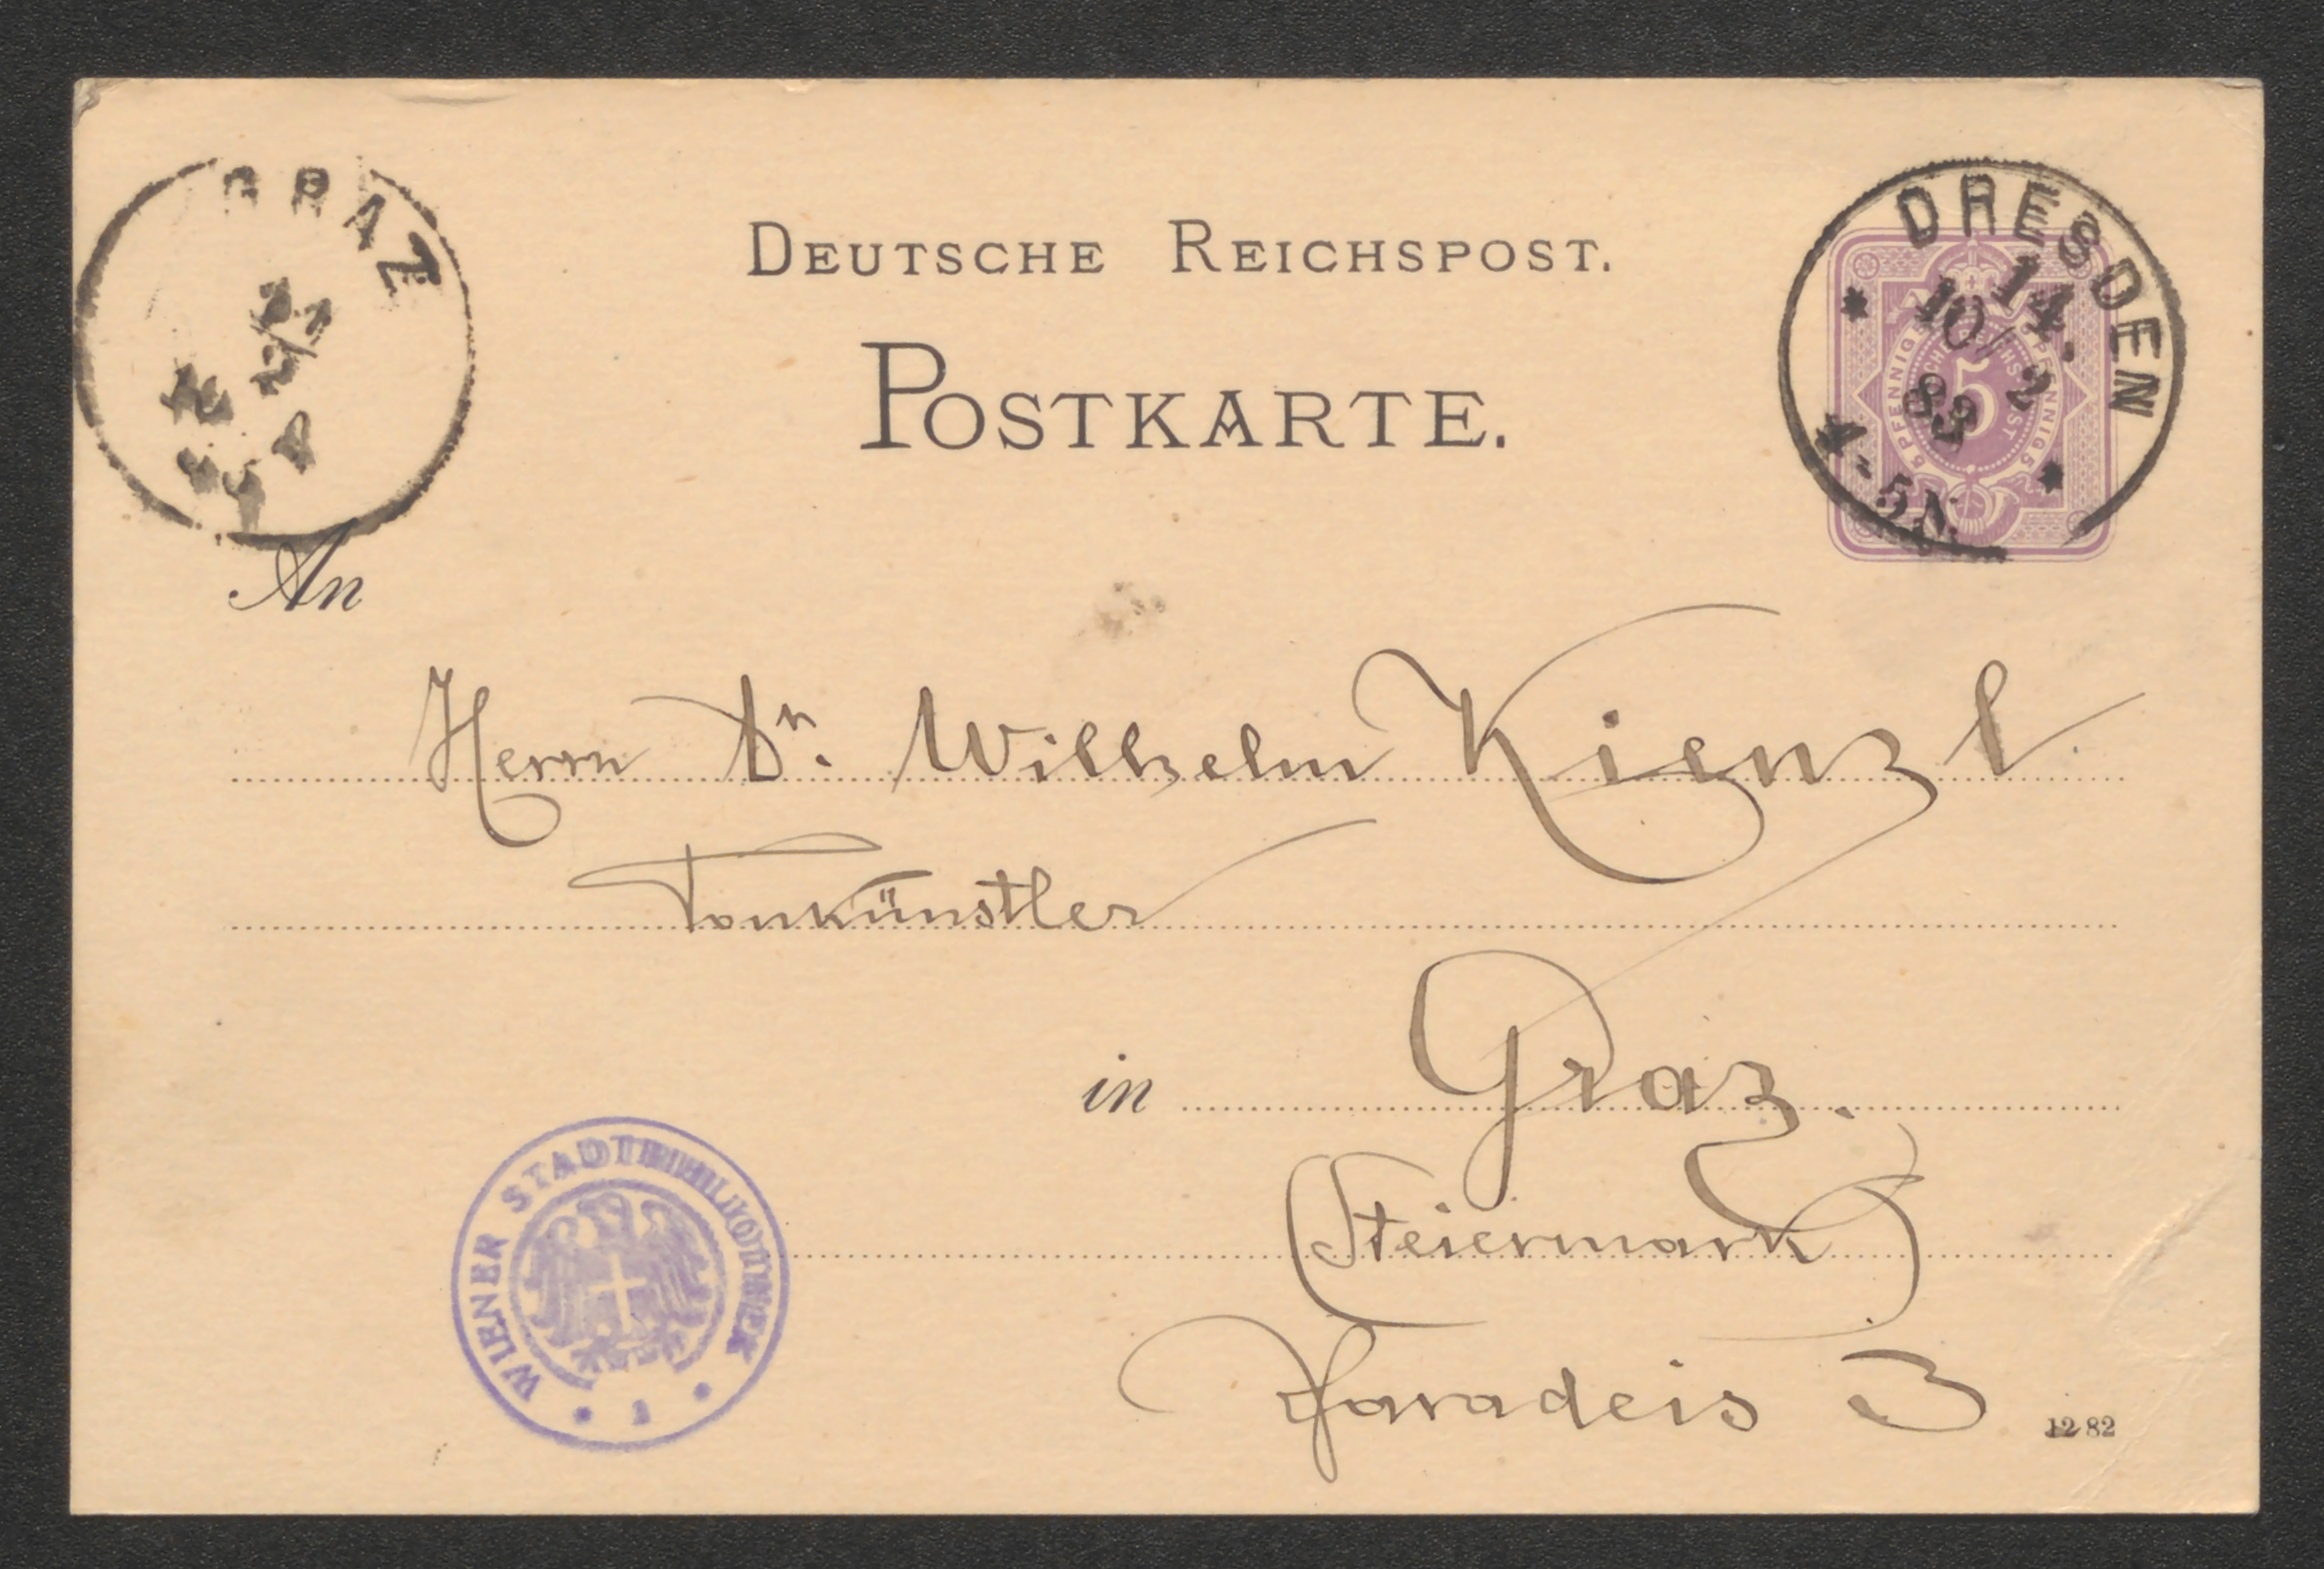 GRAZ
DEUTSCHE REICHSPOST.
POSTKARTE.
DRESDEN
14.
10/2
83
4-5N.
5 PFENNIG 5
5
An
Herrn Dr. Wilhelm Kienzl
Tonkünstler
in Graz.
(Steiermark)
Paradeis 3
WIENER STADTBIBLIOTHEK
1
12 82